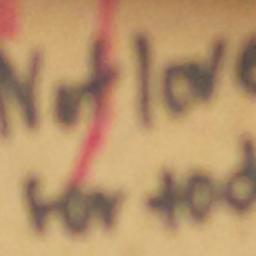 Not love
for tod